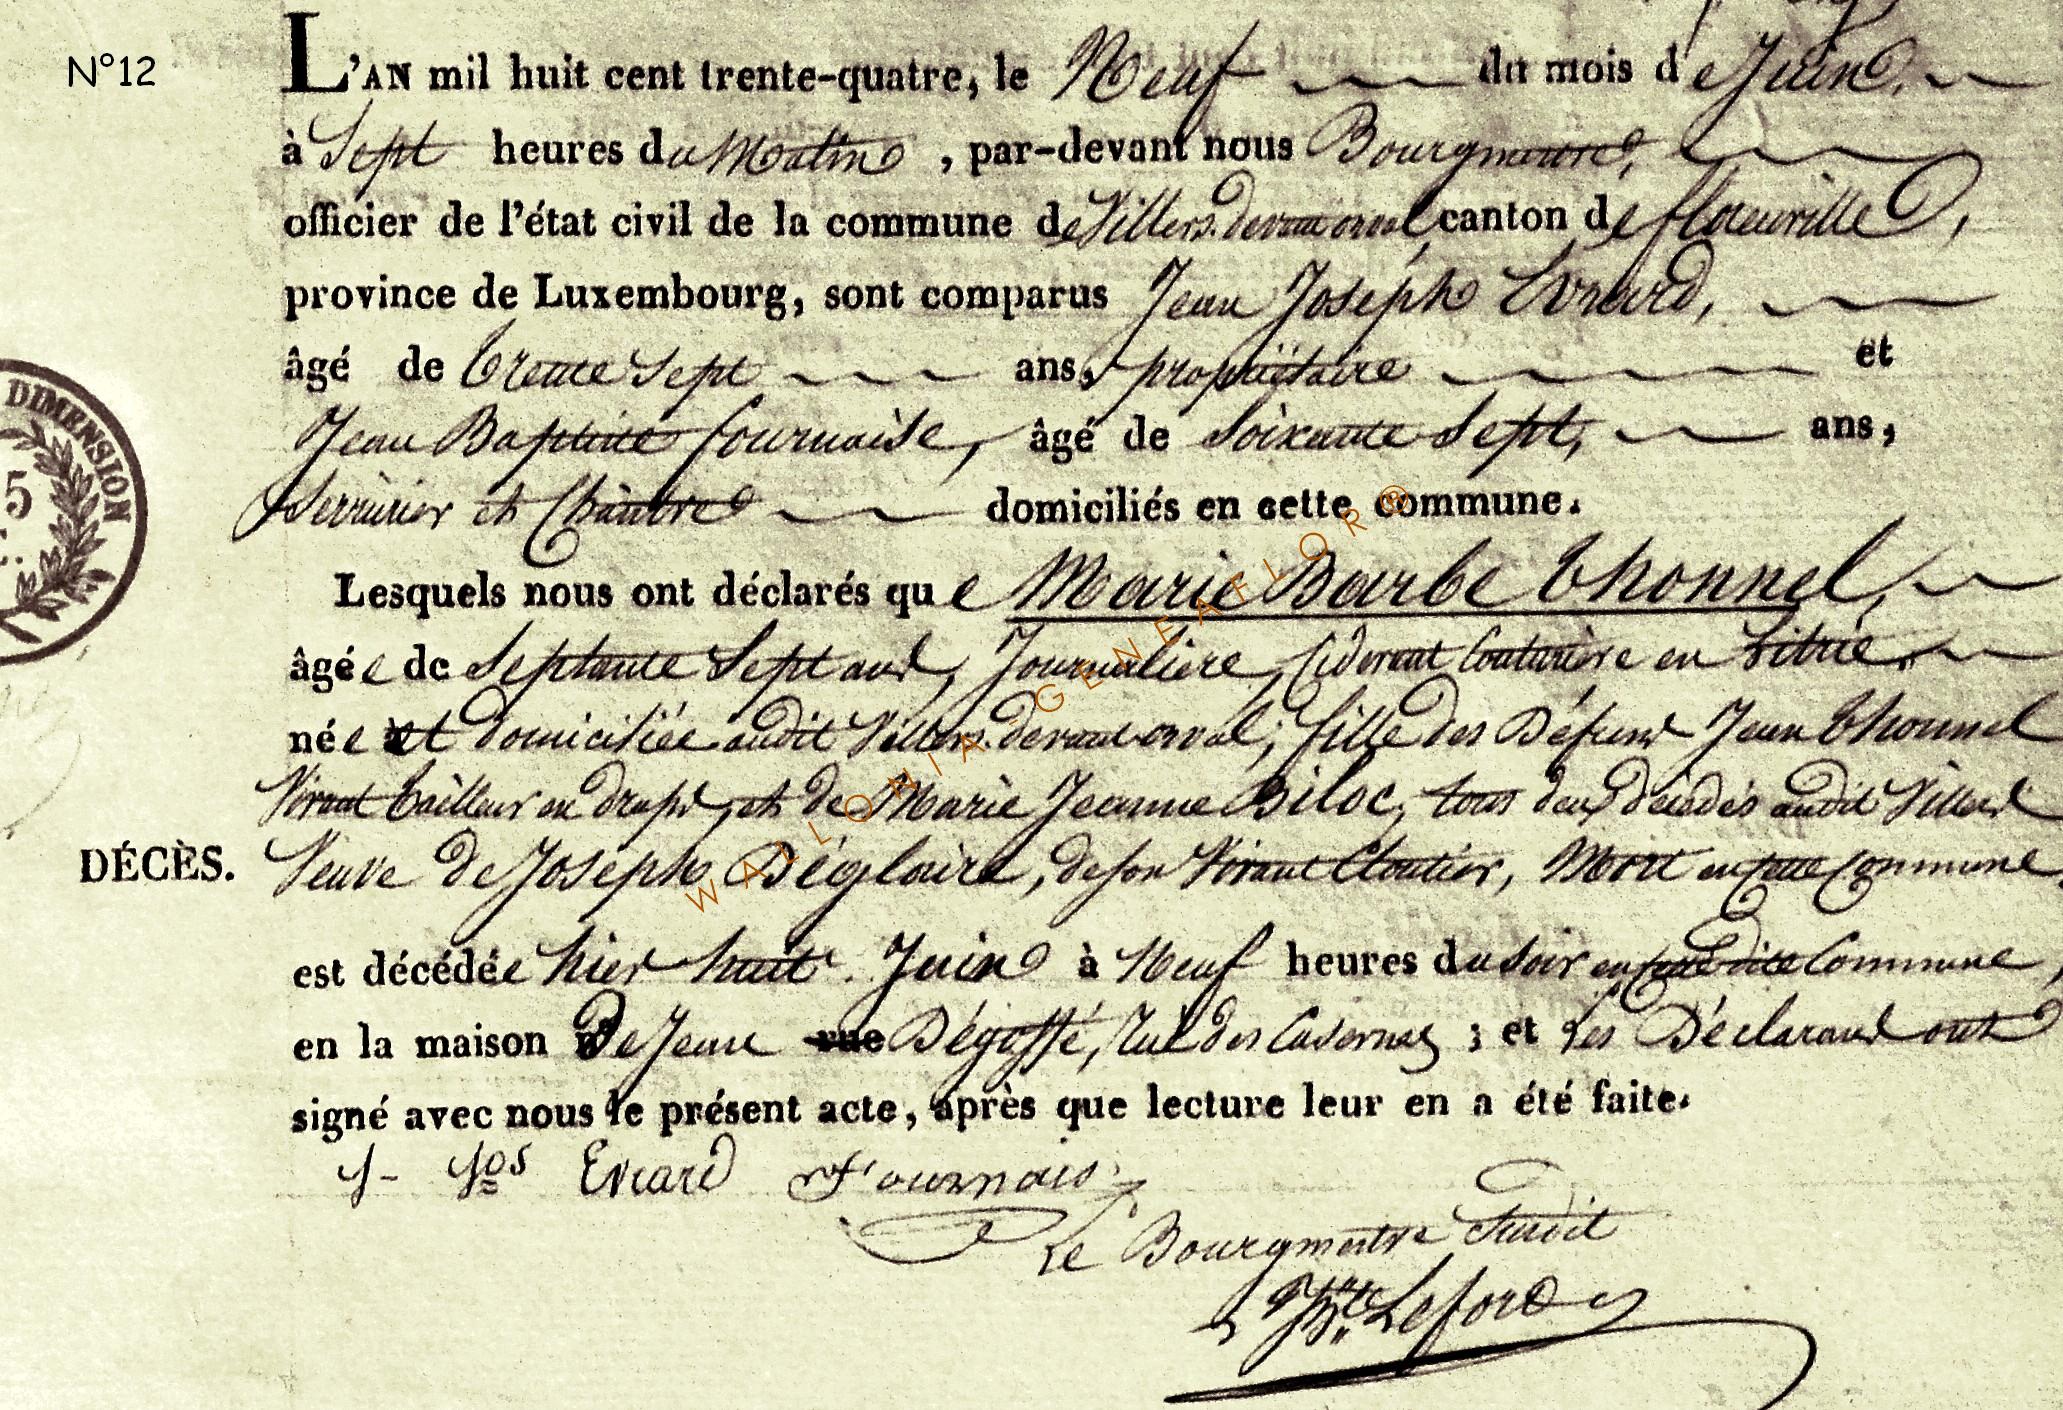 N°12
L'AN mil huit cent trente-quatre, le Neuf du mois de Juin.
à Sept heures du Matin, par-devant nous Bourgmestre,
officier de l'état civil de la commune de Villers-devant-orval, canton de florenville,
province de Luxembourg, sont comparus Jean Joseph Evrard,
âgé de trente Sept ans, propriëtaire et
Jean Baptiste fournaise, âgé de Soixante Sept, ans,
Serrurier et Chantre domiciliés en cette commune.
Lesquels nous ont déclarés que Marie Barbe thonnel,
âgée de Septante Sept ans, Journalière, Cidevant Couturière en
née et domiciliée audit Villers-devant-orval, fille des Défunts Jean thonnel
Vivant tailleur en draps, et de Marie Jeanne Biloc, tous deux décédés audit Villers
DÉCÈS. Veuve de Joseph Dégloire, de son Vivant Cloutier, Mort en cette Commune.
est décédée hier huit Juin à Neuf heures du soir en cette dite Commune,
en la maison de Jean Dégoffé, rue des Casernes ; et les Déclarans ont
signé avec nous le présent acte, après que lecture leur en a été faite.
J- Jos Evrard Fournais
Le Bourgmestre Susdit
DIMENSION
5
WALLONIA-GENEAFLOR®